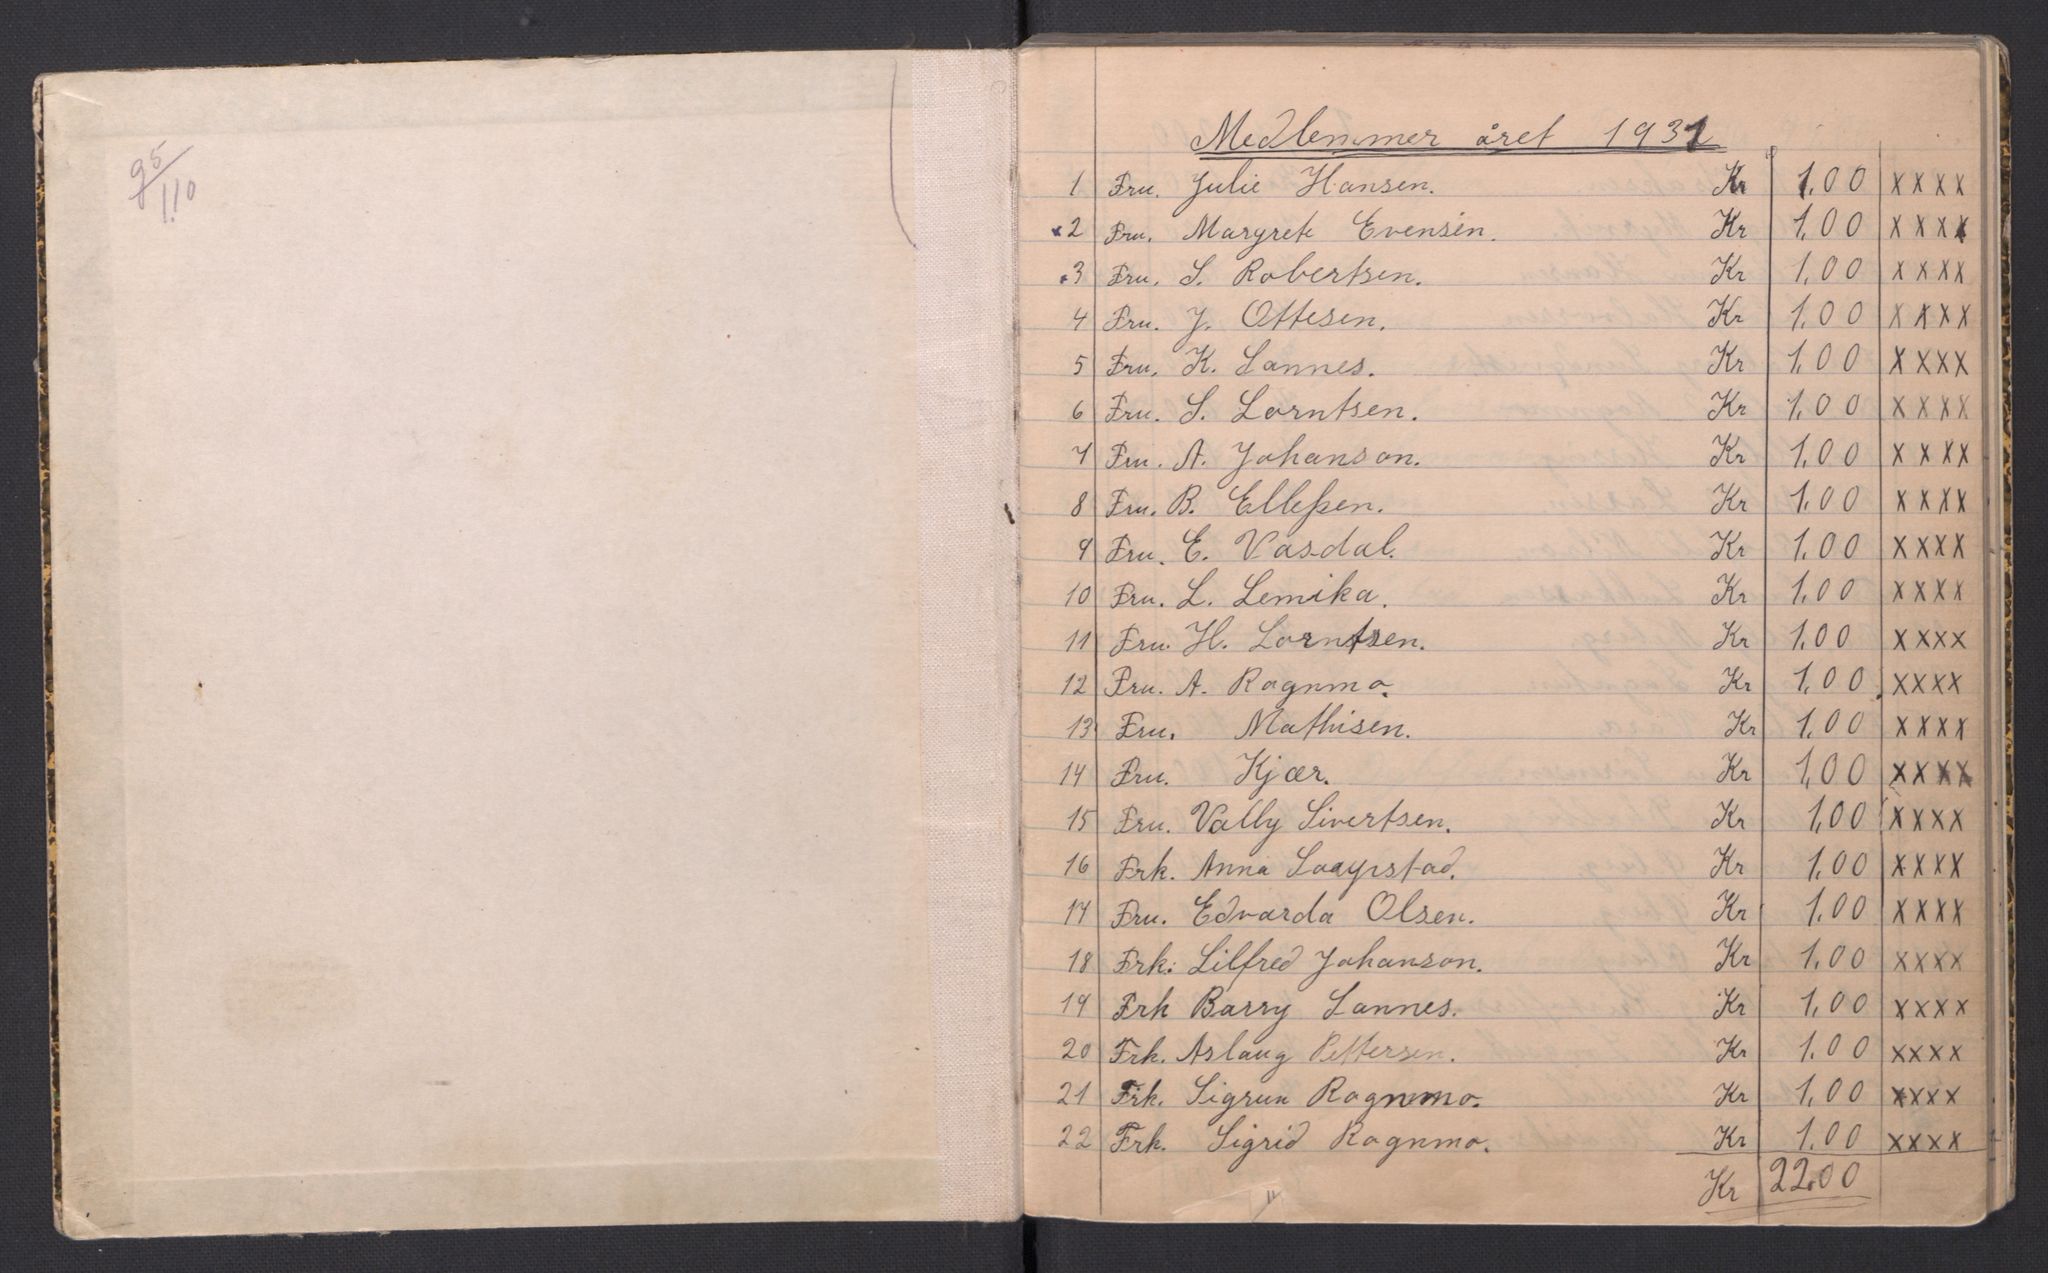 95/110
Medlemmer året 1931
1 Fru. Julie Hansen. Kr 1.00 xxxx
x2 Fru. Margrete Evensen. Kr 1.00 xxxx
.3 Fru. S. Robertsen. Kr 1.00 xxxx
4 Fru. J. Ottesen. Kr 1.00 xxxx
5 Fru. K. Lannes. Kr 1.00 xxxx
6 Fru. S. Lorntsen. Kr 1.00 xxxx
7 Fru. A. Johanson. Kr 1.00 xxxx
8 Fru. B. Elleßen. Kr 1.00 xxxx
9 Fru. E. Vasdal. Kr 1.00 xxxx
10 Fru. L. Lemika. Kr 1.00 xxxx
11 Fru. H. Lorntsen. Kr 1.00 xxxx
12 Fru. A. Ragnmo. Kr 1.00 xxxx
13 Fru. Mathisen. Kr 1.00 xxxx
14 Fru. Kjær. Kr 1,00 xxxx
15 Fru. Vally Sivertsen. Kr 1,00 xxxx
16 Frk. Anna Kr 1.00 xxxx
17 Fru. Edvarda Olsen. Kr 1.00 xxxx
18 Frk. Lilfred Johanson. Kr 1.00 xxxx
19 Frk Barry Lannes. Kr 1.00 xxxx
20 Frk. Aslaug Pettersen. Kr 1.00 xxxx
21 Frk. Sigrun Ragnmo. Kr 1.00 xxxx
22 Frk. Sigrid Ragnmo. Kr 1.00 xxxx
Kr 22.00